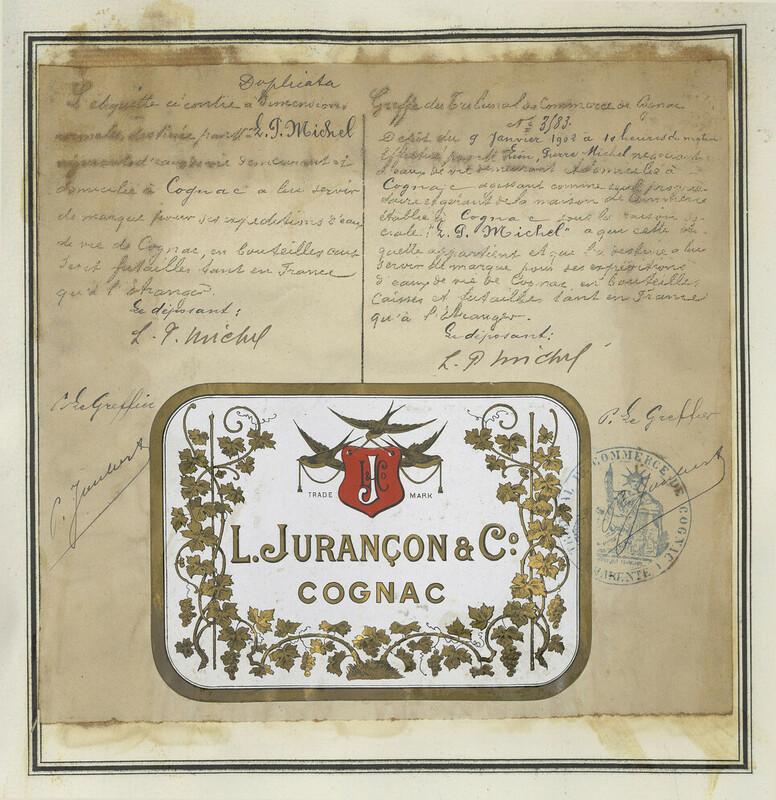 Duplicata
L'étiquette ci contre à Dimensions
normales, destinée par Mr L. P. Michel
négociant d'eaux de vie demeurant et
domicilié à Cognac a lui servir
de marque pour ses expéditions d'eau
de vie de Cognac, en bouteilles
et futailles tant en France
qu'à l'Etranger.
Le déposant:
L. P. Michel
P. Le Greffier
P. Jaubert
Greffe du Tribunal de Commerce de Cognac
No 3/83.
Dépôt du 9 Janvier 1902 à 10 heures du matin
Effectué par M Léon, Pierre Michel négociant
d'eaux de vie demeurant et domicilié à
Cognac agissant comme seul proprié-
taire et gérant de la maison de Commerce
établie à Cognac sous la raison so-
ciale: "L. P. Michel" a qui cette éti-
quette appartient et qui l'a destinée a lui
servir de marque pour ses expéditions
d'eaux de vie de Cognac, en bouteilles,
caisses et futailles tant en France
qu'à l'Etranger.
Le déposant:
L. P. Michel
P. Le Greffier
Jaubert
J & Co
TRADE MARK
L. JURANÇON & Co
COGNAC
TRIBUNAL DE COMMERCE DE COGNAC
CHARENTE